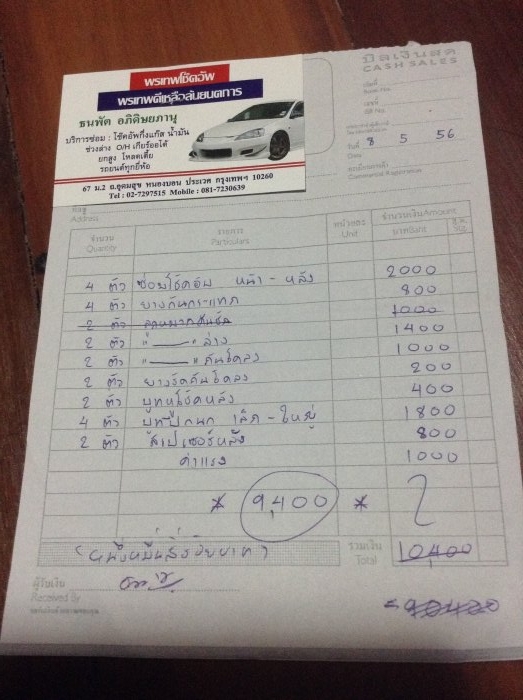 บิลเงินสด
CASH SALES
พรเทพโช๊คอัพ
พรเทพดีเหลือล้นยนตการ
ธนพัต อภิดิษยภานุ
บริการซ่อม : โช๊คอัพกึ่งแก๊ส น้ำมัน
ช่วงล่าง O/H เกียร์ออโต้
ยกสูง โหลดเตี้ย
รถยนต์ทุกยี่ห้อ
67 ม.2 ถ.อุดมสุข หนองบอน ประเวศ กรุงเทพฯ 10260
Tel : 02-7297515 Mobile : 081-7230639
เล่มที่
Book No.
เลขที่
Bill No.
วันที่ 8 5 56
Date
Commercial Registration
ที่อยู่
Address
จำนวน รายการ หน่วยละ จำนวนเงิน Amount
Quantity Particulars Unit บาท Baht
4 ตัว ซ่อมโช้คอัพ หน้า - หลัง 2000
4 ตัว ยางกันกระแทก 800
2 ตัว ลูกหมากคันชัก 1000
2 ตัว " —— " ล่าง 1400
2 ตัว " —— " คันโคลง 1000
2 ตัว ยางรัดคันโคลง 200
2 ตัว บูทหูโช้คหลัง 400
4 ตัว บูทปีกนก เล็ก - ใหญ่ 1800
2 ตัว สเปเซอร์หลัง 800
ค่าแรง 1000
* 9,400 *
รวมเงิน
Total 10,400
ผู้รับเงิน
Received By